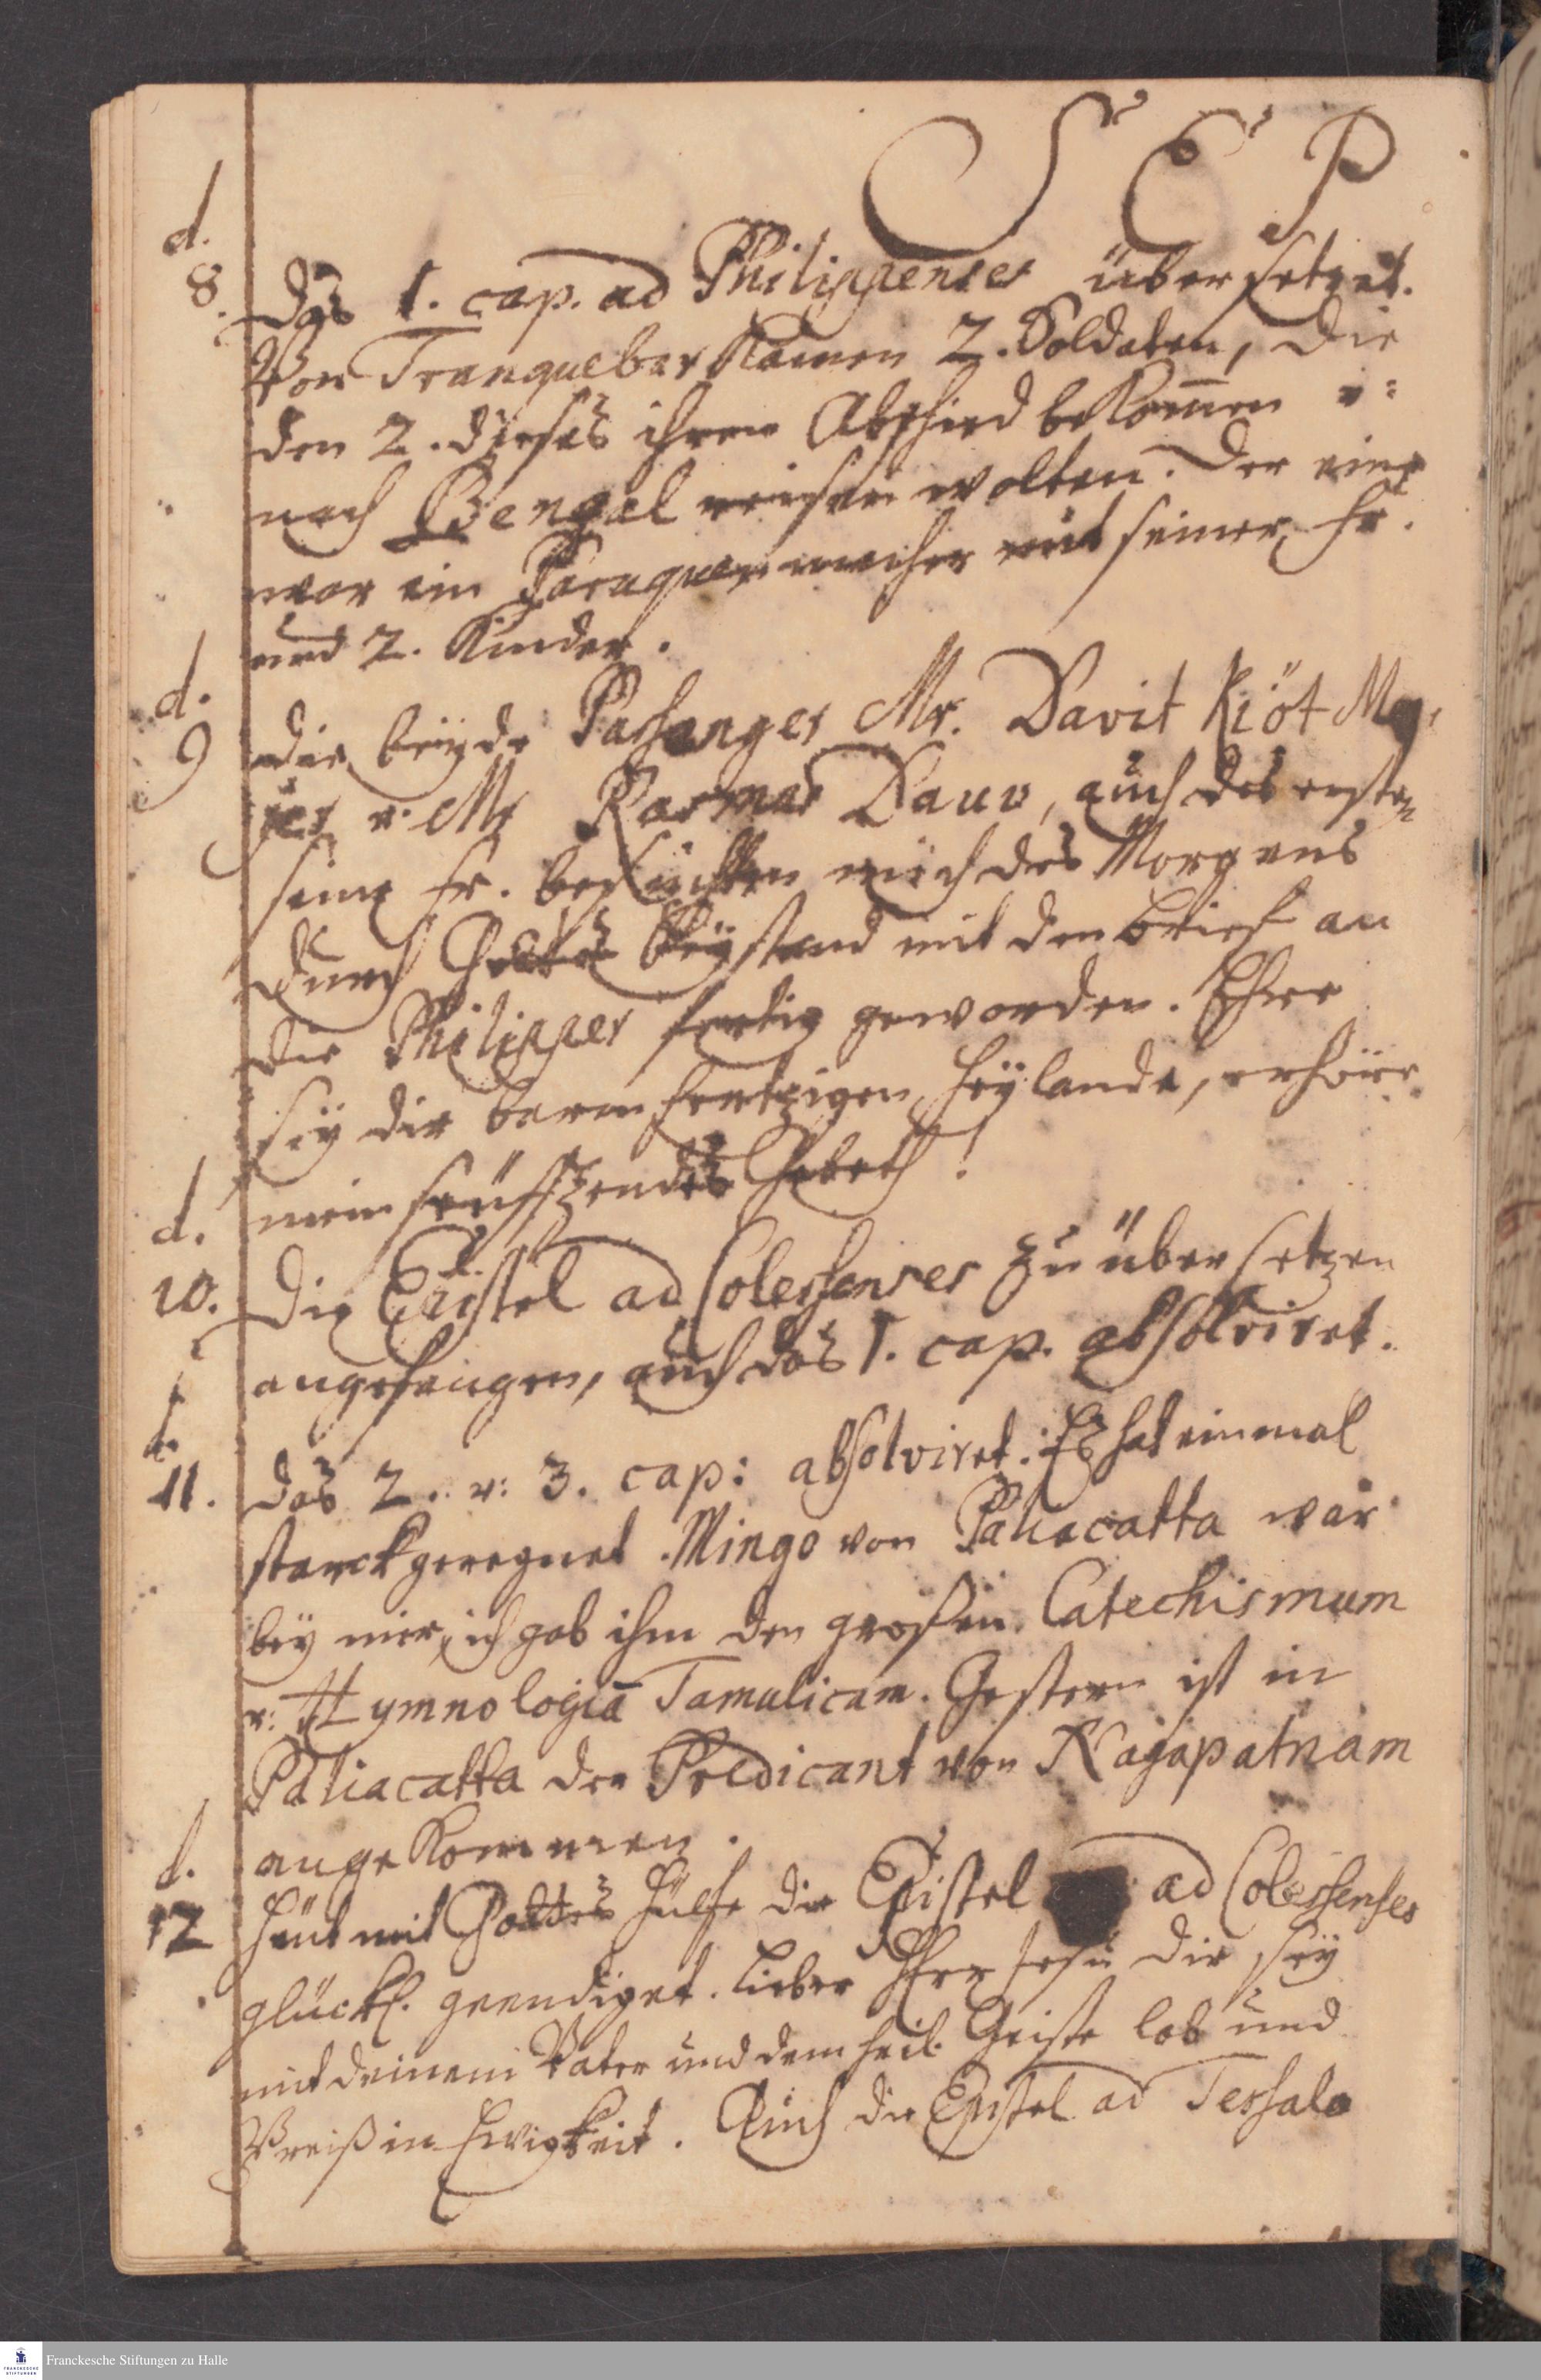 SEP
d. 8. Das 1. cap. ad Philippenses übersetzet.
Von Tranquebar kamen 2. Soldaten, die
den 2. dieses ihren Abschied bekom̅en v:
nach Bengal reisen wolten. Der eine
war ein macher mit seiner Fr.
und 2. Kinder.
d. 9 die beyde Passanger Mr. Davit Kiöt Mey,
jer v. Mr Rasmus Dauv, auch des ersten
seine Fr. besuchten mich des Morgens
durch Gottes Beystand mit den Brief an
die Philipper fertig geworden. Ehre
sey dir barmhertzigen Heylande, erhöre
mein seufftzendes Gebeth!
d. 10. Die Epistel ad Colossenses zu übersetzen
angefangen, auch das 1. cap. absolviret.
d. 11. das 2. v: 3. cap: absolviret. Es hat einmal
starck geregnet. Mingo von Paliacatta war
bey mir, ich gab ihm den großen Catechismum
v: Hymnologia̅ Tamulicam. Gestern ist in
Paliacatta der Predicant von Nagapatnam
angekommen.
d. 12 Heut mit Gottes Hülfe die Epistel ad Colossenses
glückl. geendiget. Lieber Herr Jesu dir sey
mit deinem Vater und dem heil. Geiste lob und
Preiß in Ewigkeit. Auch die Epistel ad Tessalo
Franckesche Stiftungen zu Halle